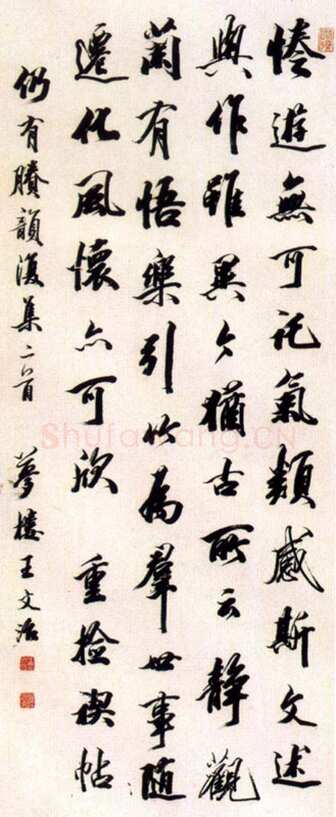 惓遊無可託氣類感斯文述
與作雖異今猶古所云靜觀
蘭有悟樂引竹為羣世事隨
遷化風懷亦可欣 重撿禊帖
仍有賸韻復集二首 夢樓王文治